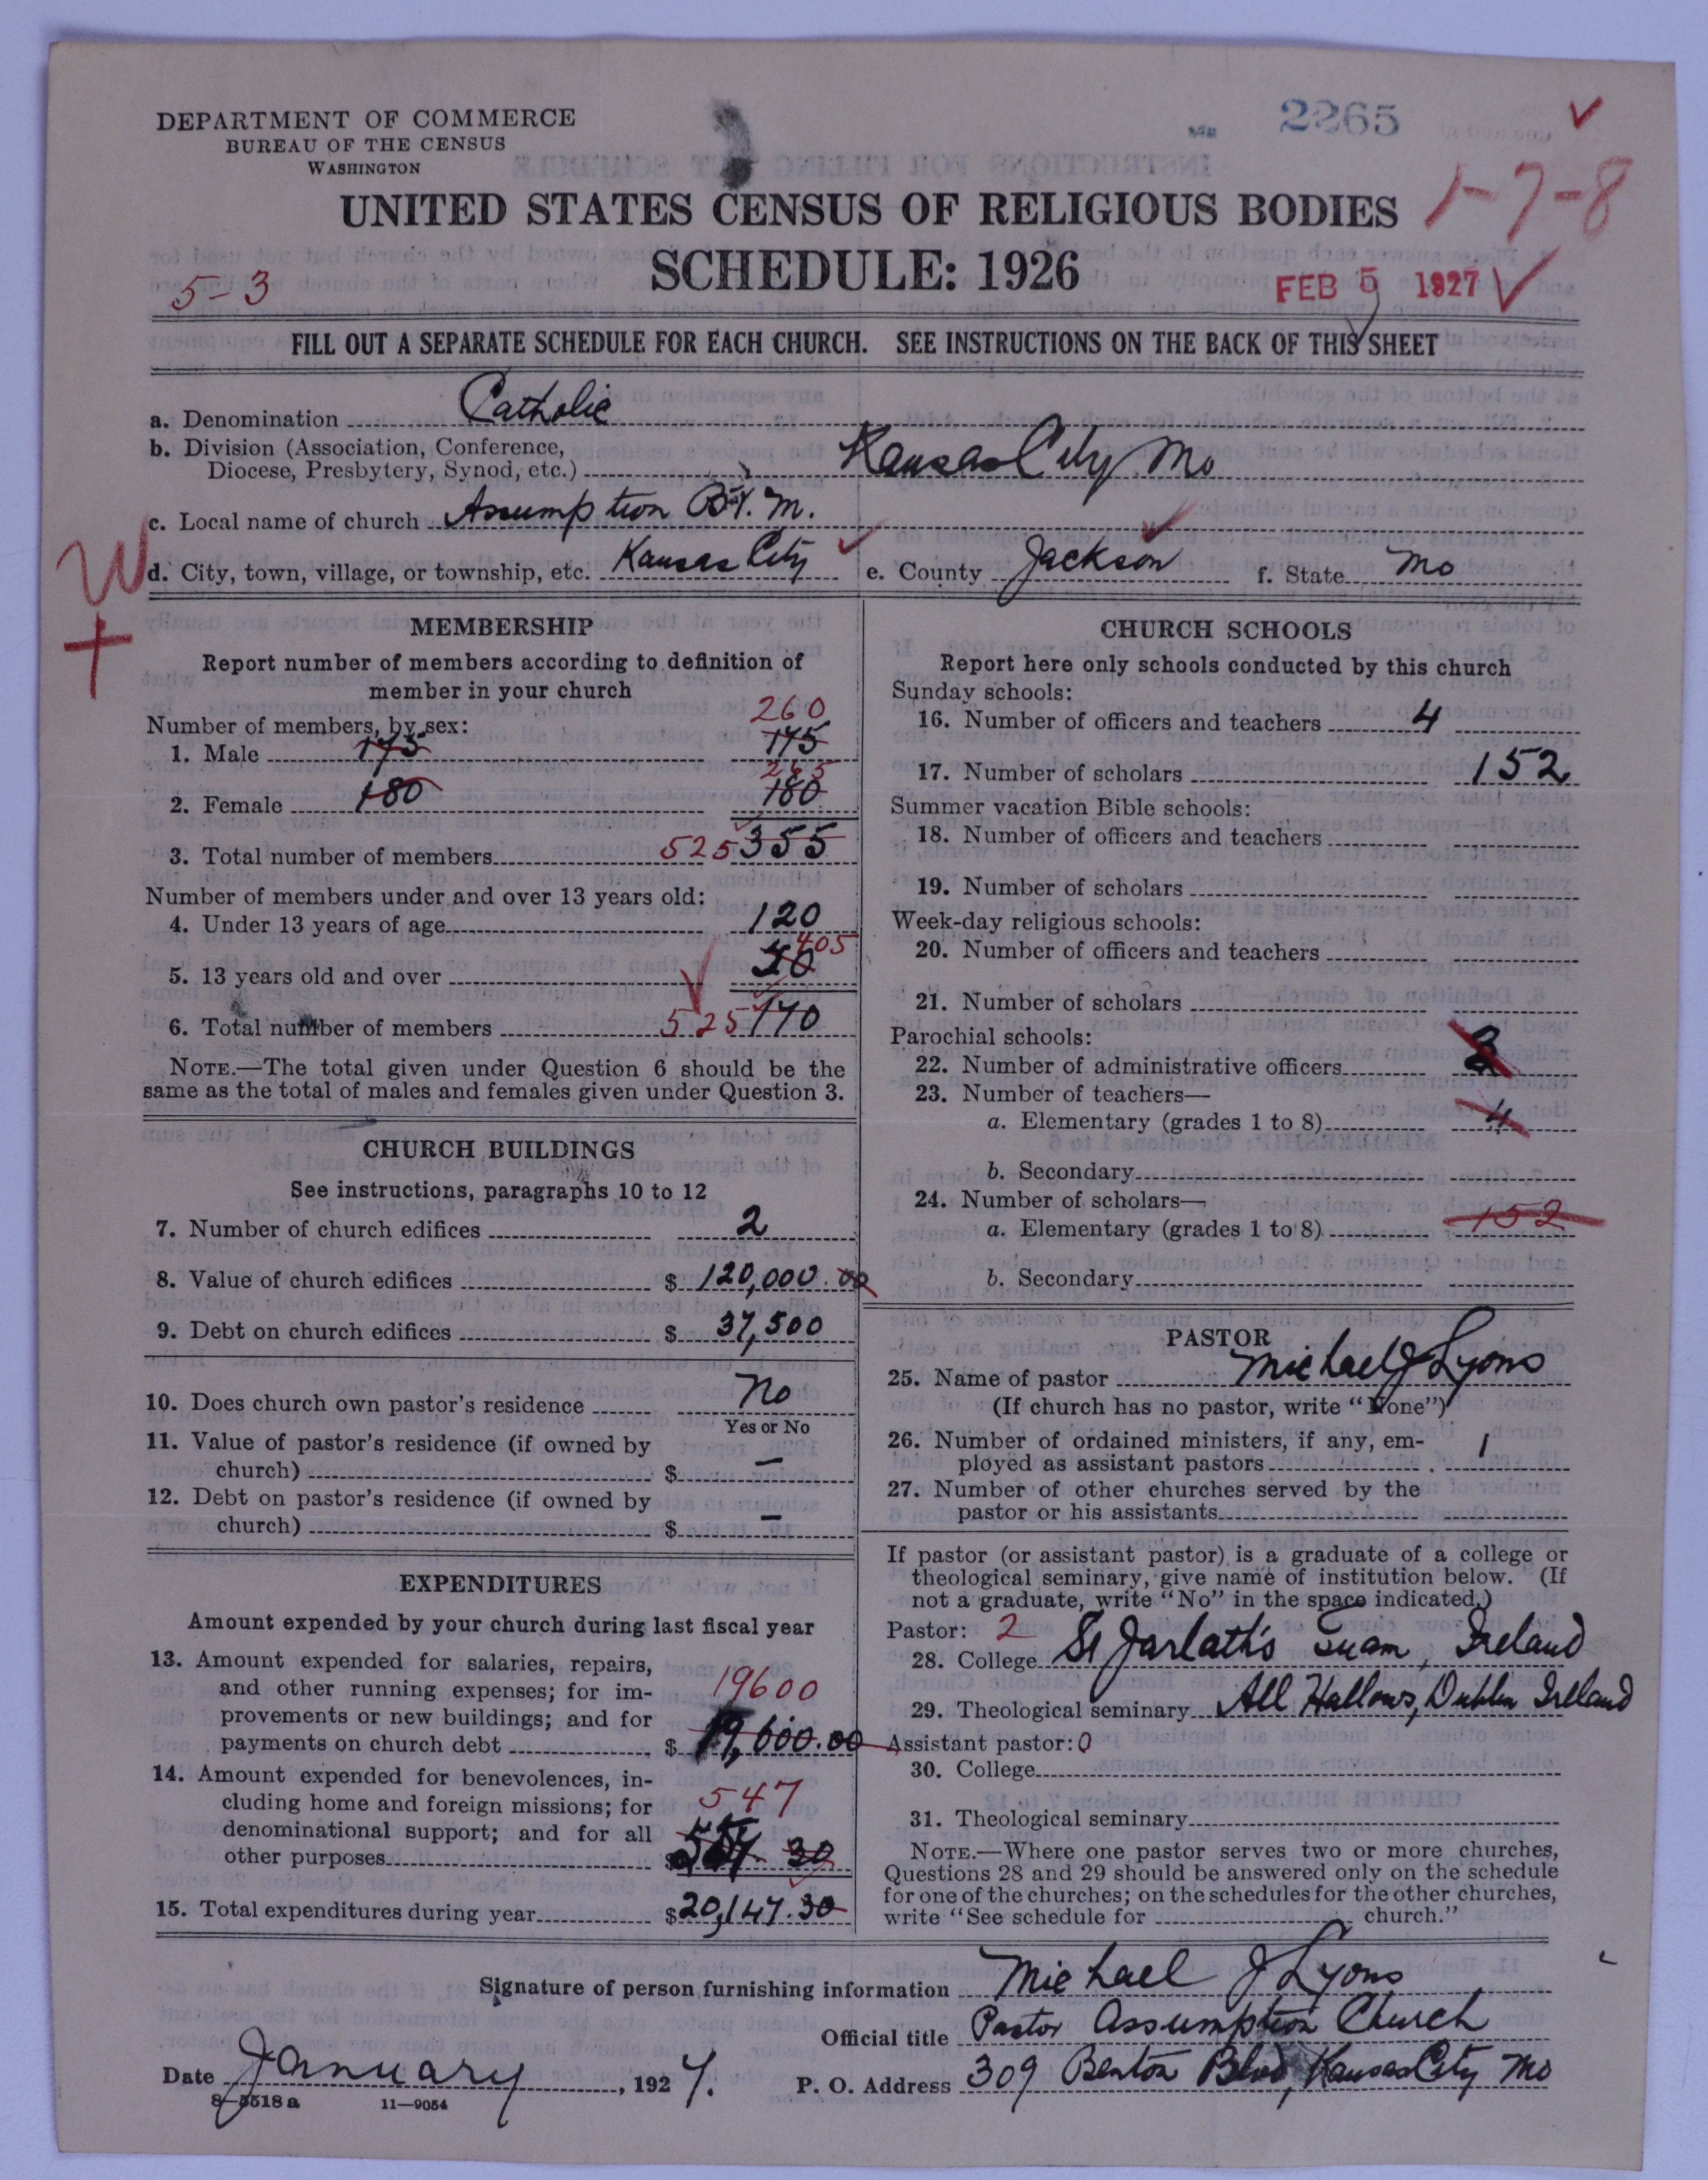 DEPARTMENT OF COMMERCE
BUREAU OF THE CENSUS
WASHINGTON
2265
1-7-8
UNITED STATES CENSUS OF RELIGIOUS BODIES
SCHEDULE: 1926
5-3
FEB 5 1927
FILL OUT A SEPARATE SCHEDULE FOR EACH CHURCH. SEE INSTRUCTIONS ON THE BACK OF THIS SHEET
a. Denomination Catholic
b. Division (Association, Conference,
Diocese, Presbytery, Synod, etc.) Kansas City Mo
c. Local name of church Assumption B.V.M.
W
d. City, town, village, or township, etc. Kansas City e. County Jackson f. State Mo
MEMBERSHIP
Report number of members according to definition of
member in your church
260
Number of members, by sex:
1. Male 175 175
265
2. Female 180 180
3. Total number of members 525 355
Number of members under and over 13 years old:
4. Under 13 years of age 120
405
5. 13 years old and over 50
6. Total number of members 525 170
NOTE.—The total given under Question 6 should be the
same as the total of males and females given under Question 3.
CHURCH BUILDINGS
See instructions, paragraphs 10 to 12
7. Number of church edifices 2
8. Value of church edifices $ 120,000.00
9. Debt on church edifices $ 37,500
10. Does church own pastor's residence No
Yes or No
11. Value of pastor's residence (if owned by
church) $ —
12. Debt on pastor's residence (if owned by
church) $ —
EXPENDITURES
Amount expended by your church during last fiscal year
13. Amount expended for salaries, repairs,
and other running expenses; for im- 19600
provements or new buildings; and for
payments on church debt $ 19,600.00
14. Amount expended for benevolences, in-
cluding home and foreign missions; for 547
denominational support; and for all
other purposes $ 547 30
15. Total expenditures during year $ 20,147.30
CHURCH SCHOOLS
Report here only schools conducted by this church
Sunday schools:
16. Number of officers and teachers 4
17. Number of scholars 152
Summer vacation Bible schools:
18. Number of officers and teachers
19. Number of scholars
Week-day religious schools:
20. Number of officers and teachers
21. Number of scholars
Parochial schools:
22. Number of administrative officers 2
23. Number of teachers—
a. Elementary (grades 1 to 8) 4
b. Secondary
24. Number of scholars—
a. Elementary (grades 1 to 8) 152
b. Secondary
PASTOR
25. Name of pastor Michael J Lyons
(If church has no pastor, write "None")
26. Number of ordained ministers, if any, em-
ployed as assistant pastors 1
27. Number of other churches served by the
pastor or his assistants
If pastor (or assistant pastor) is a graduate of a college or
theological seminary, give name of institution below. (If
not a graduate, write "No" in the space indicated.)
Pastor: 2
28. College St Jarlath's Tuam, Ireland
29. Theological seminary All Hallows, Dublin Ireland
Assistant pastor: 0
30. College
31. Theological seminary
NOTE.—Where one pastor serves two or more churches,
Questions 28 and 29 should be answered only on the schedule
for one of the churches; on the schedules for the other churches,
write "See schedule for church."
Signature of person furnishing information Michael J Lyons
Official title Pastor Assumption Church
Date January, 1927. P. O. Address 309 Benton Blvd, Kansas City Mo
8-5518a 11—9054